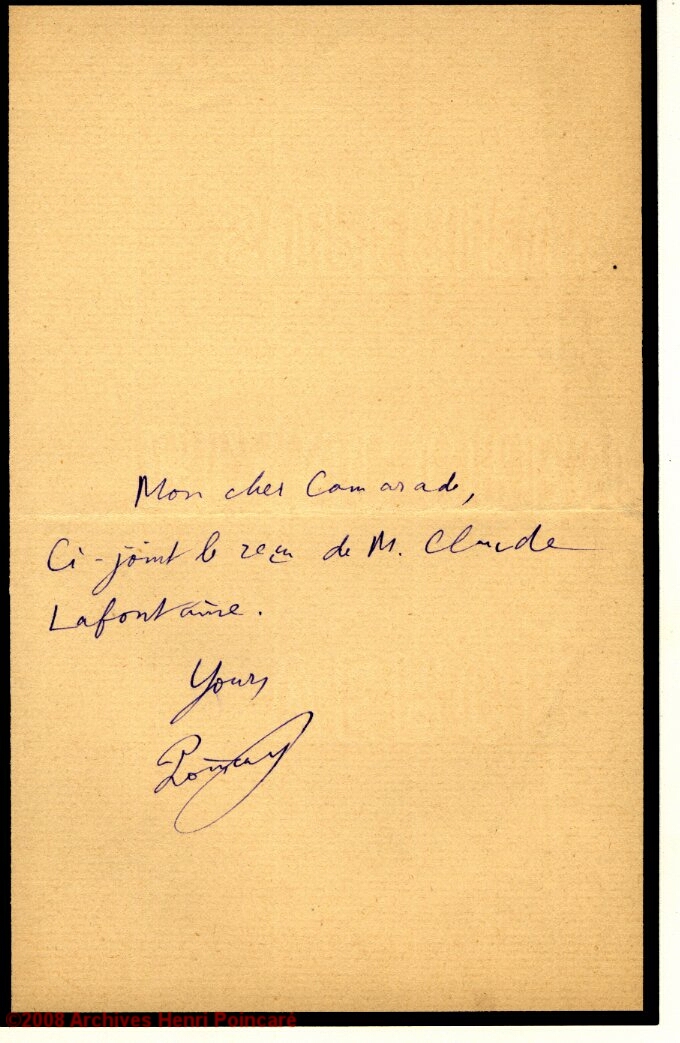 Mon cher Camarade,
Ci-joint le reçu de M. Claude
Lafontaine.
Yours
Poincaré
©2008 Archives Henri Poincaré